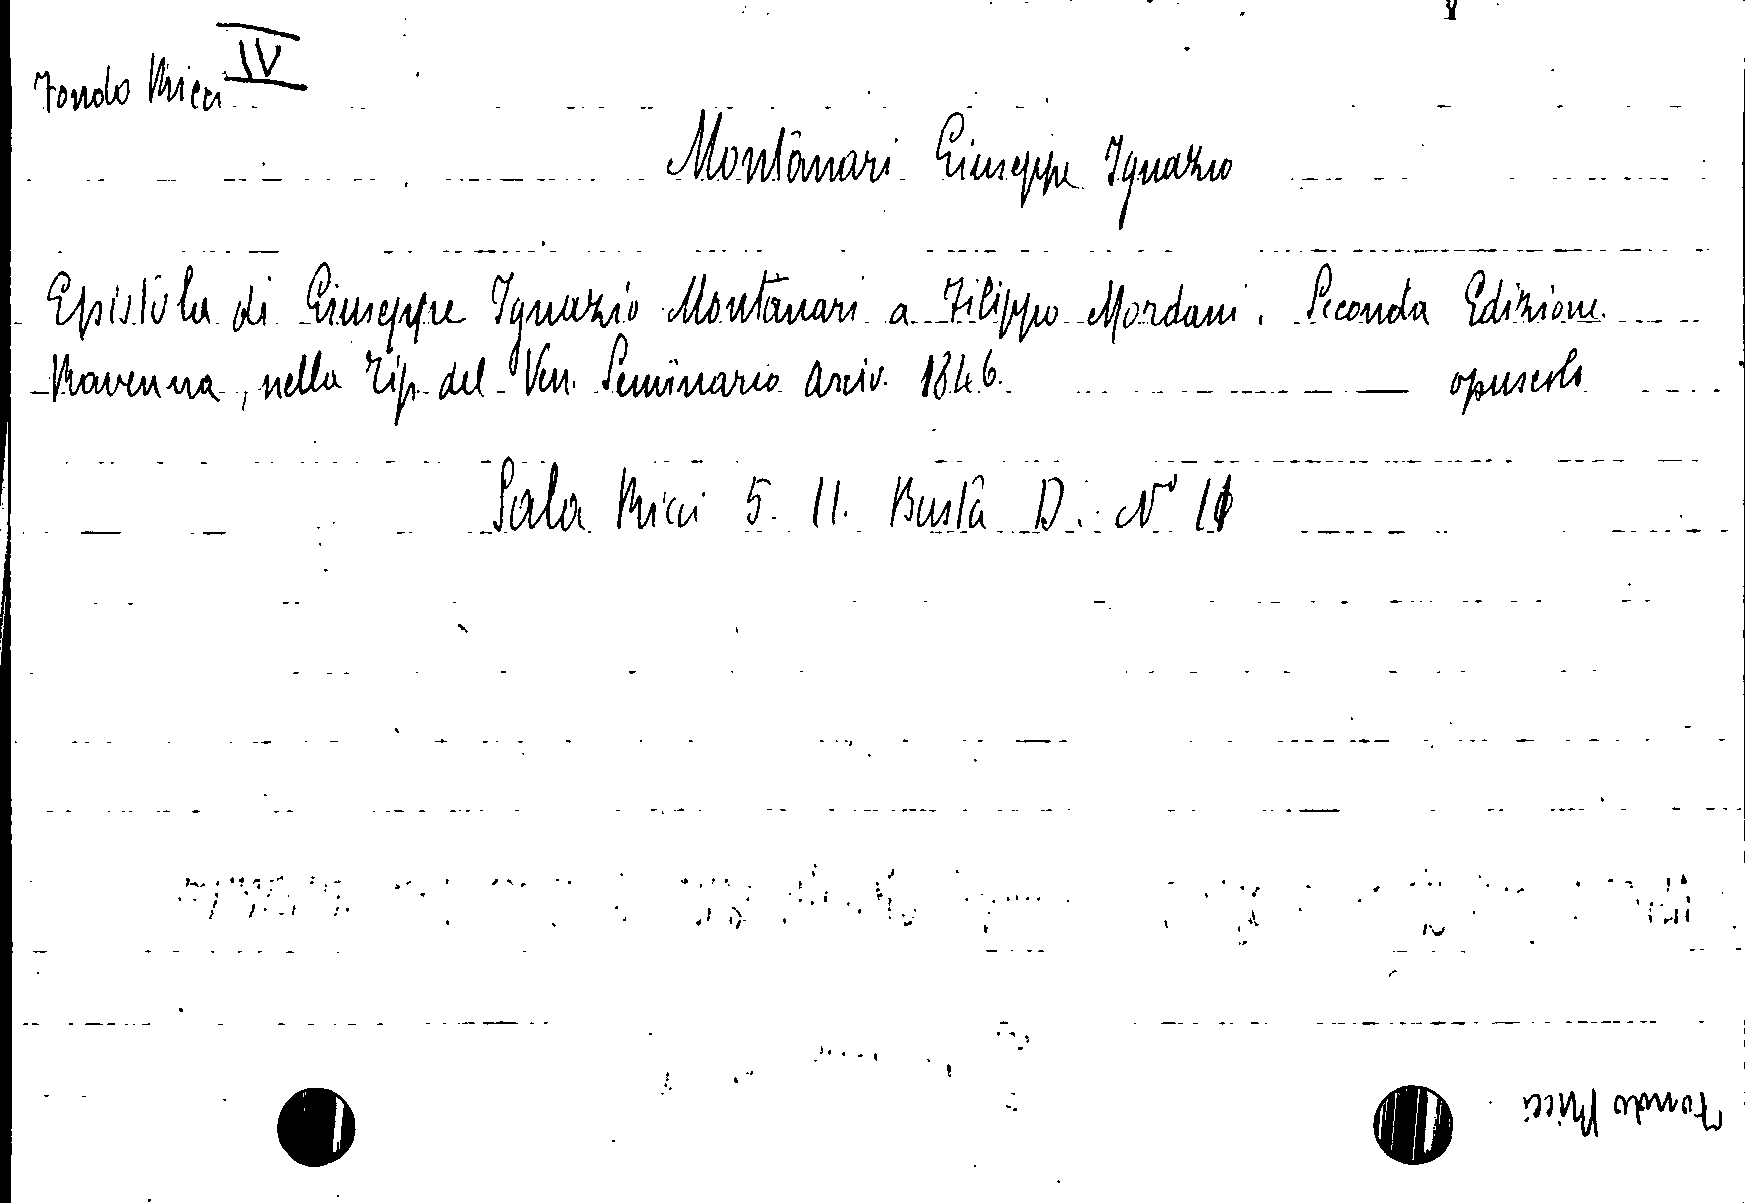 IV
Fondo Ricci
Montanari Giuseppe Ignazio
Epistola di Giuseppe Ignazio Montanari a Filippo Mordani. Seconda Edizione.
Ravenna, nella Tip. del Ven. Seminario Arciv. 1846. opuscolo
Sala Ricci 5. 11. Busta D. N°
Fondo Ricci